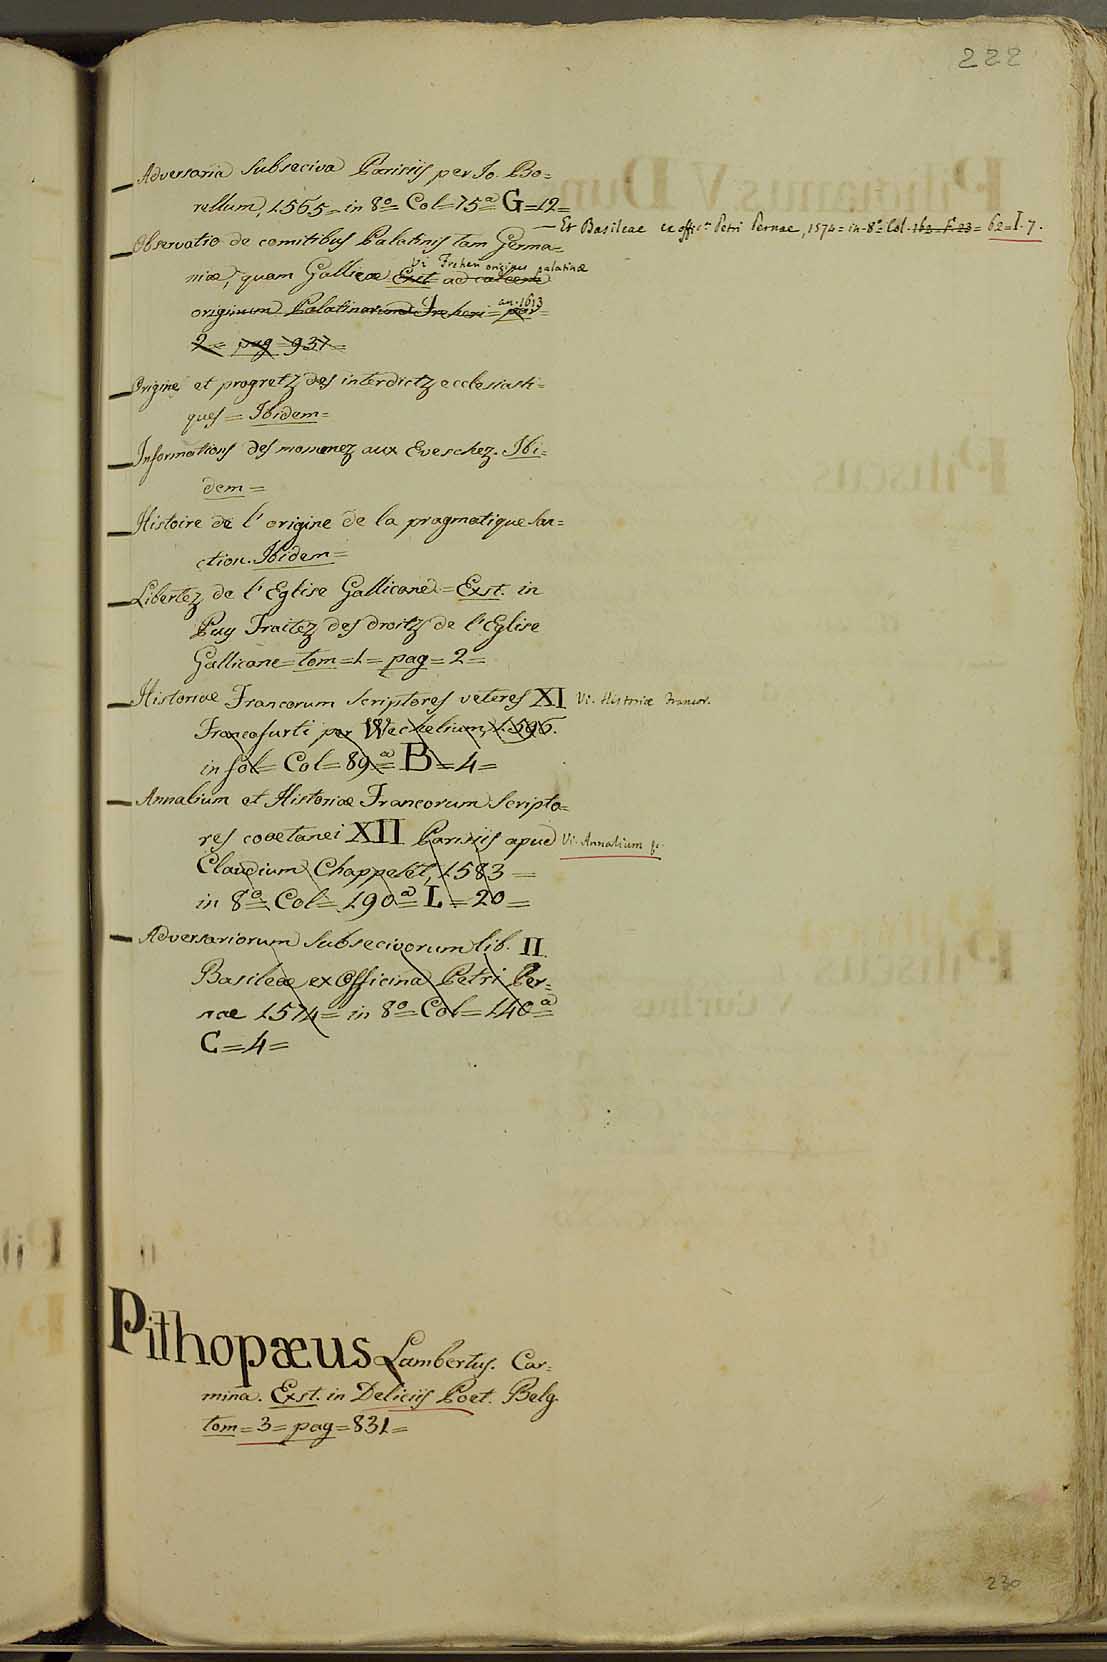 222
Adversaria Subseciva Parisiis per Io. Bo=
rellum, 1565 = in 8º = Col = 75ª G = 12 =
— Et Basileae ex offic.ª Petri Pernae, 1574 = in 8º Col. 163 F. 23 = 62 = I. 7.
Observatio de comitibus Palatinis tam Germa=
niæ, quam Gallicæ Exst ad calcem
Vi Freheri origines palatinæ
originum Palatinarum Freheri = par =
an. 1613
2 = pag = 937 =
Origine et progretz des interdictz ecclesiasti=
ques = Ibidem =
Informations des mommez aux Eveschez. Ibi=
dem =
Histoire de l' origine de la pragmatique San=
ction. Ibidem =
Libertez de l' Eglise Gallicane = Exst. in
Puy Traitez des droitz de l' Eglise
Gallicane = tom = 1 = pag = 2 =
Historiæ Francorum Scriptores veteres XI Vi. Historiæ Francor.
Francofurti per Wechelium, 1596.
in fol = Col = 89ª = B = 4 =
Annalium et Historiæ Francorum Scripto=
res coætanei XII Parisiis apud Vi. Annalium
Claudium Chappelet, 1583 =
in 8º = Col = 190ª = L = 20 =
Adversariorum Subsecivorum lib. II.
Basileæ ex Officina Petri Per=
næ 1574 = in 8º = Col = 140ª =
C = 4 =
Pithopæus Lambertus. Car=
mina. Exst. in Deliciis Poet. Belg.
tom = 3 = pag = 831 =
230